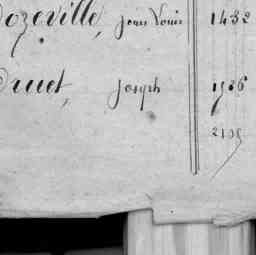 ozeville, Jean Louis 1432
ruet, Joseph 1936
2109